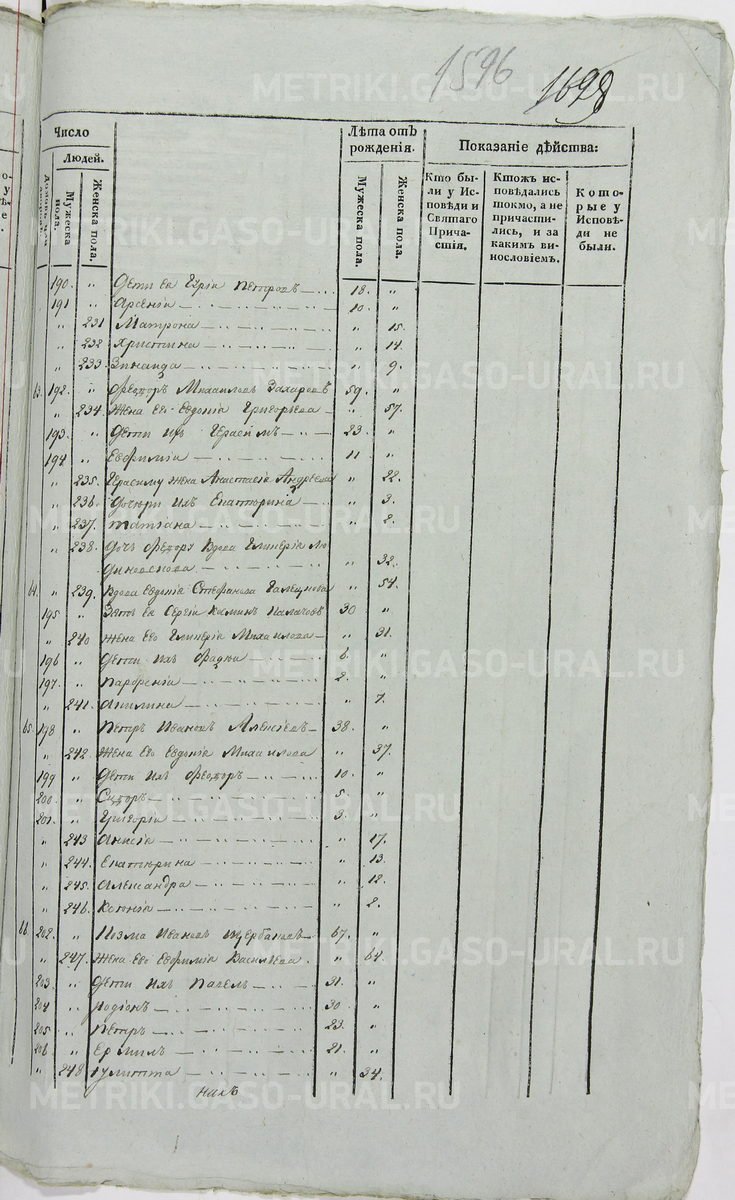 1596 1698
Число
Людей.
Мужеска пола.
Женска пола.
Лѣта отъ рожденія.
Мужеска пола.
Женска пола.
Показаніе дѣйства:
Кто были у Исповѣди и Святаго Причастія.
Ктожъ исповѣдались токмо, а не причастились, и за какимъ винословіемъ.
Которые у Исповѣди не были.
190. " Дѣти ея Гурій Петровъ 18. "
191 " Арсеній 10. "
" 231 Матрона " 15.
" 232 Христина " 14.
" 233 Зинаида " 9.
63. 192. " Ѳеодоръ Михаиловъ Захаровъ 59. "
" 234. Жена его Евдокія Григорьева " 57.
193. " Дѣти ихъ Герасимъ 23. "
194 " Евфимій 11 "
" 235. Герасиму жена Анастасія Андреева " 22.
" 236. Дочери ихъ Екатерина " 3.
" 237. Татіана " 2.
" 238. Дочь Ѳеодору вдова Гликерія
" 32.
64. " 239. Вдова Евдокія Стефанова " 54.
195 " Зять ея Сергій 30 "
" 240 Жена его Гликерія Михаилова " 31.
196 " Дѣти ихъ 6. "
197. " Парфеній 2. "
" 241. Акилина " 7.
65. 198 " Петръ Ивановъ Алексѣевъ 38. "
" 242. Жена его Евдокія Михаилова " 37.
199 " Дѣти ихъ Ѳеодоръ 10. "
200. " Сидоръ 5. "
201. " Григорій 3. "
" 243 Анисія " 17.
" 244. Екатерина " 13.
" 245. Александра " 12.
" 246. Ксенія " 2.
66. 202. " Козма Ивановъ Щербаковъ 67. "
" 247. Жена его Евфимія Васильева " 64.
203. " Дѣти ихъ Павелъ 31. "
204 " Родіонъ 30 "
205 " Петръ 23. "
206 " Ермилъ 21. "
" 248 Улитта " 34.
METRIKI.GASO-URAL.RU